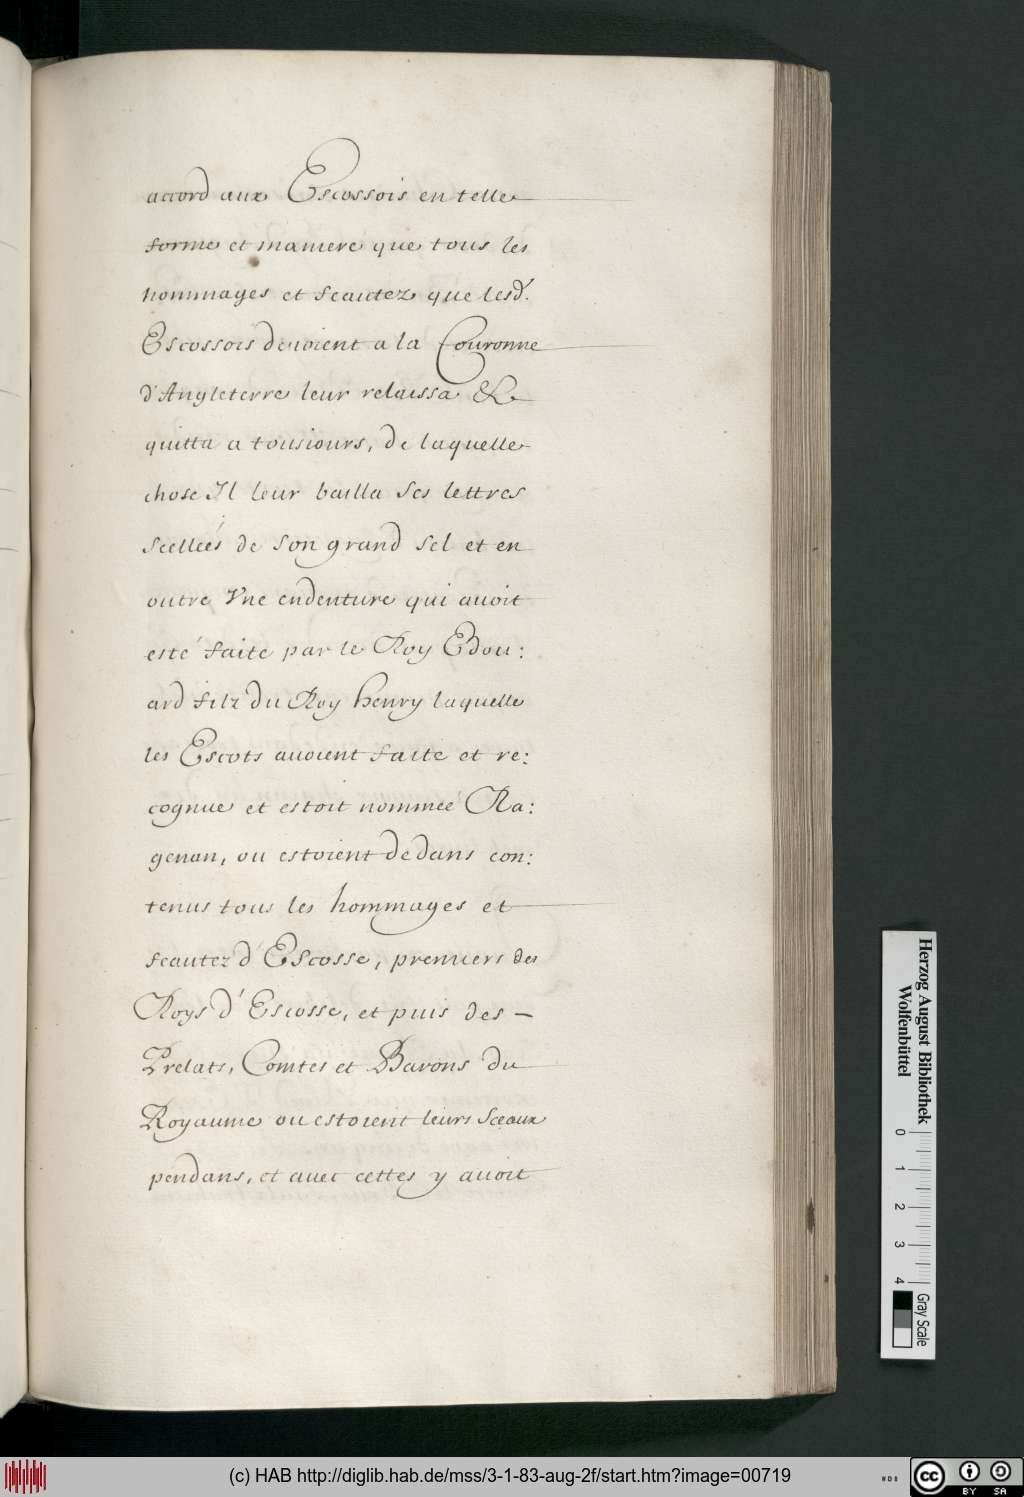 accord aux Escossois en telle
forme et maniere que tous les
hommages et feautez que lesd.
Escossois devoient a la Couronne
d'Angleterre leur relaissa &
quitta a tousiours, de laquelle
chose Il leur bailla ses lettres
scelleés de son grand sel et en
outre Vne endenture qui auoit
esté faite par le Roy Edou:
ard filz du Roy henry laquelle
les Escots auoient faite et re:
cognue et estoit nommeé Ra:
genan, ou estoient dedans con:
tenus tous les hommages et
feautez d'Escosse, premiers des
Roys d'Escosse, et puis des –
Prelats, Comtes et Barons du
Royaume ou estoient leurs sceaux
pendans, et auec cettes y auoit
Herzog August Bibliothek
Wolfenbüttel
0 1 2 3 4
Gray Scale
(c) HAB http://diglib.hab.de/mss/3-1-83-aug-2f/start.htm?image=00719
WDB
cc BY SA